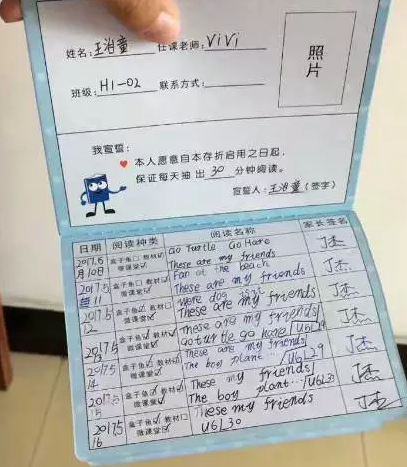 姓名:王治童 任课老师:ViVi
照片
班级:H1-02 联系方式:
我宣誓:
本人愿意自本存折启用之日起,
保证每天抽出 30 分钟阅读。
宣誓人:王治童(签字)
日期 阅读种类 阅读名称 家长签名
2017.5月10日 盒子鱼口 教材☑ 微课堂☑ Go Turtle Go Hare
These are my friends
Fan at the beach
2017.5 11 盒子鱼☑ 教材☑ 微课堂☑ These are my friends
2017.5 12 盒子鱼☑ 教材☑ 微课堂☑ These are my friends
2017.5 13 盒子鱼☑ 教材☑ 微课堂☑ These are my friends
go turtle go hare/U6L28
2017.5 14 盒子鱼☑ 教材☑ 微课堂☑ These are my friends
The boy plant.../U6L29
2017.5 15 盒子鱼☑ 教材口 微课堂☑ These my friends
The boy plant.../U6L30
2017.5 16 盒子鱼☑ 教材口 微课堂☑ These my friends
U6L30